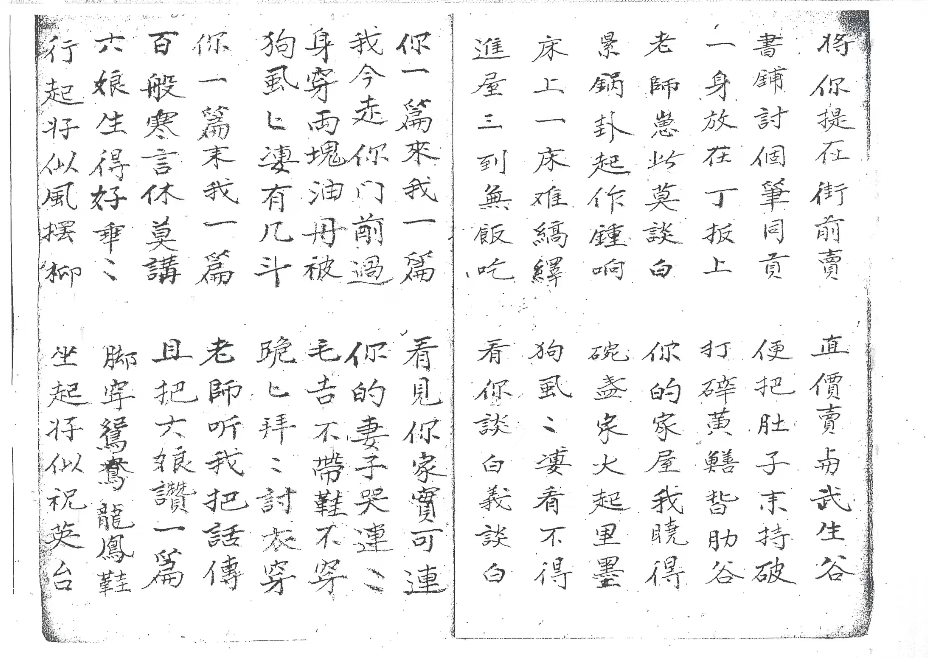 将你提在街前賣 直價賣与武生谷
書鋪討個筆同貢 便把肚子末持破
一身放在丁板上 打碎黄鱔皆肋谷
老師崽此莫談白 你的家屋我曉得
景鍋卦起作鍾响 碗盏家火起里墨
床上一床难縞繹 狗虱〻凄看不得
進屋三到無飯吃 看你談白義談白
你一篇來我一篇 看見你家實可連
我今走你门前過 你的妻子哭連〻
身穿両塊油丹被 毛吉不帶鞋不穿
狗虱匕凄有几斗 跪匕拜〻討衣穿
你一篇末我一篇 老師听我把話傳
百般寒言休莫講 且把六娘讚一篇
六娘生得好乖〻 脚穿鴛鴦龍鳳鞋
行起好似風摆柳 坐起好似祝英台